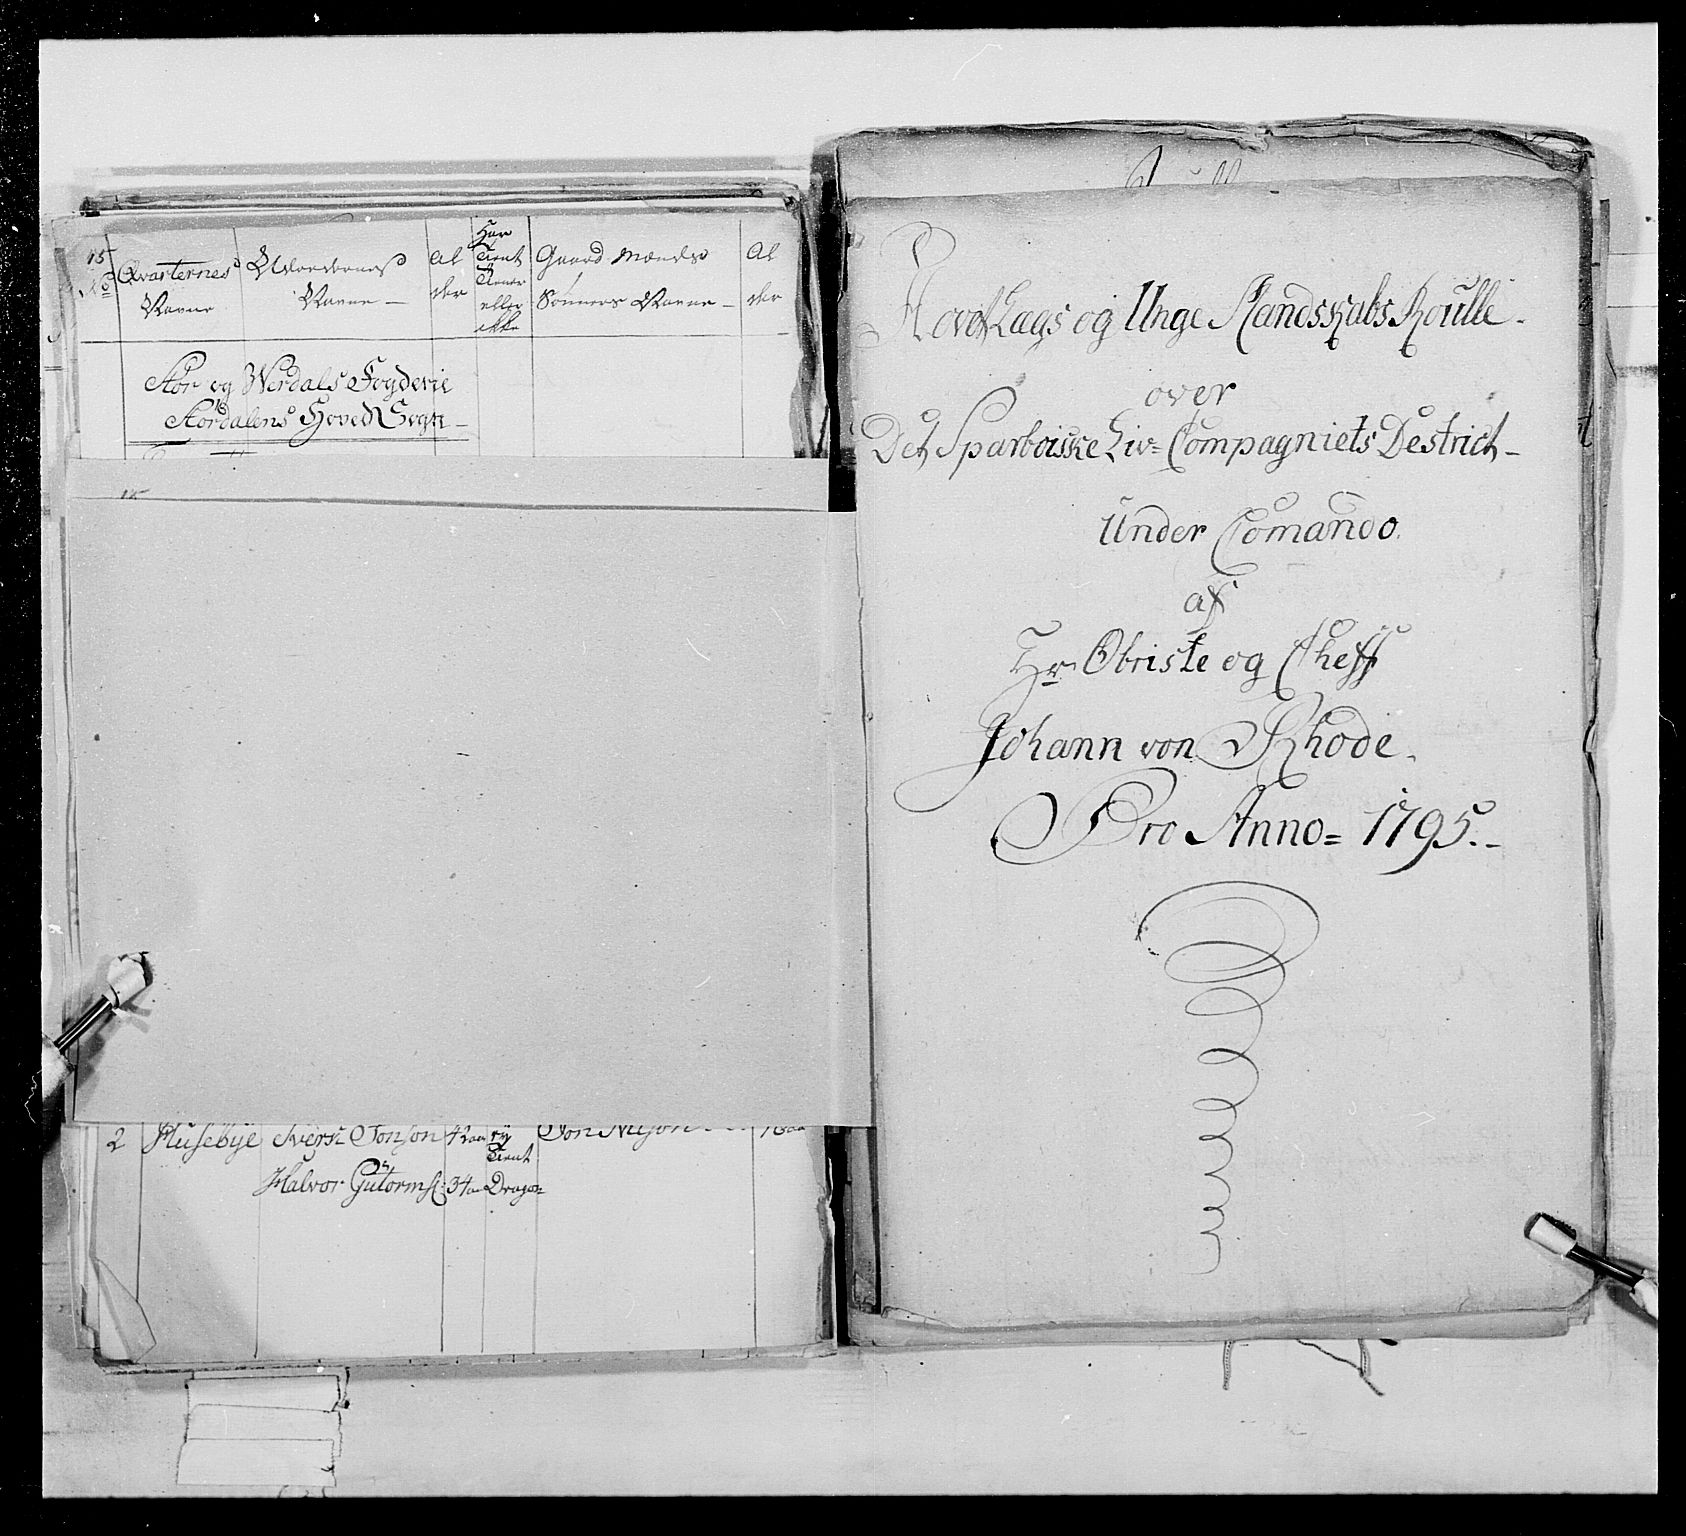 15
No
Qvarternes Navne
Udvordernes Navne —
Al der
Har Tient Tiener eller ikke
Gaard Mænds Sönners Navne —
Al der
Stör og Werdals Fogderie
Stördalens Hoved Sogn —
15
2 Husebye Sivert Jonson 42 aar ey Tient Jon Nilson 16 aar
Halvor Gütormß: 34 aar Dragon
Hoved Lægs og Unge Mandskabs Roulle.
over
Det Sparboiske Liv= Compagniets Destrict —
Under Comando
af
Hr Obriste og Cheff
Johann von Rhode.
Pro Anno= 1795.-